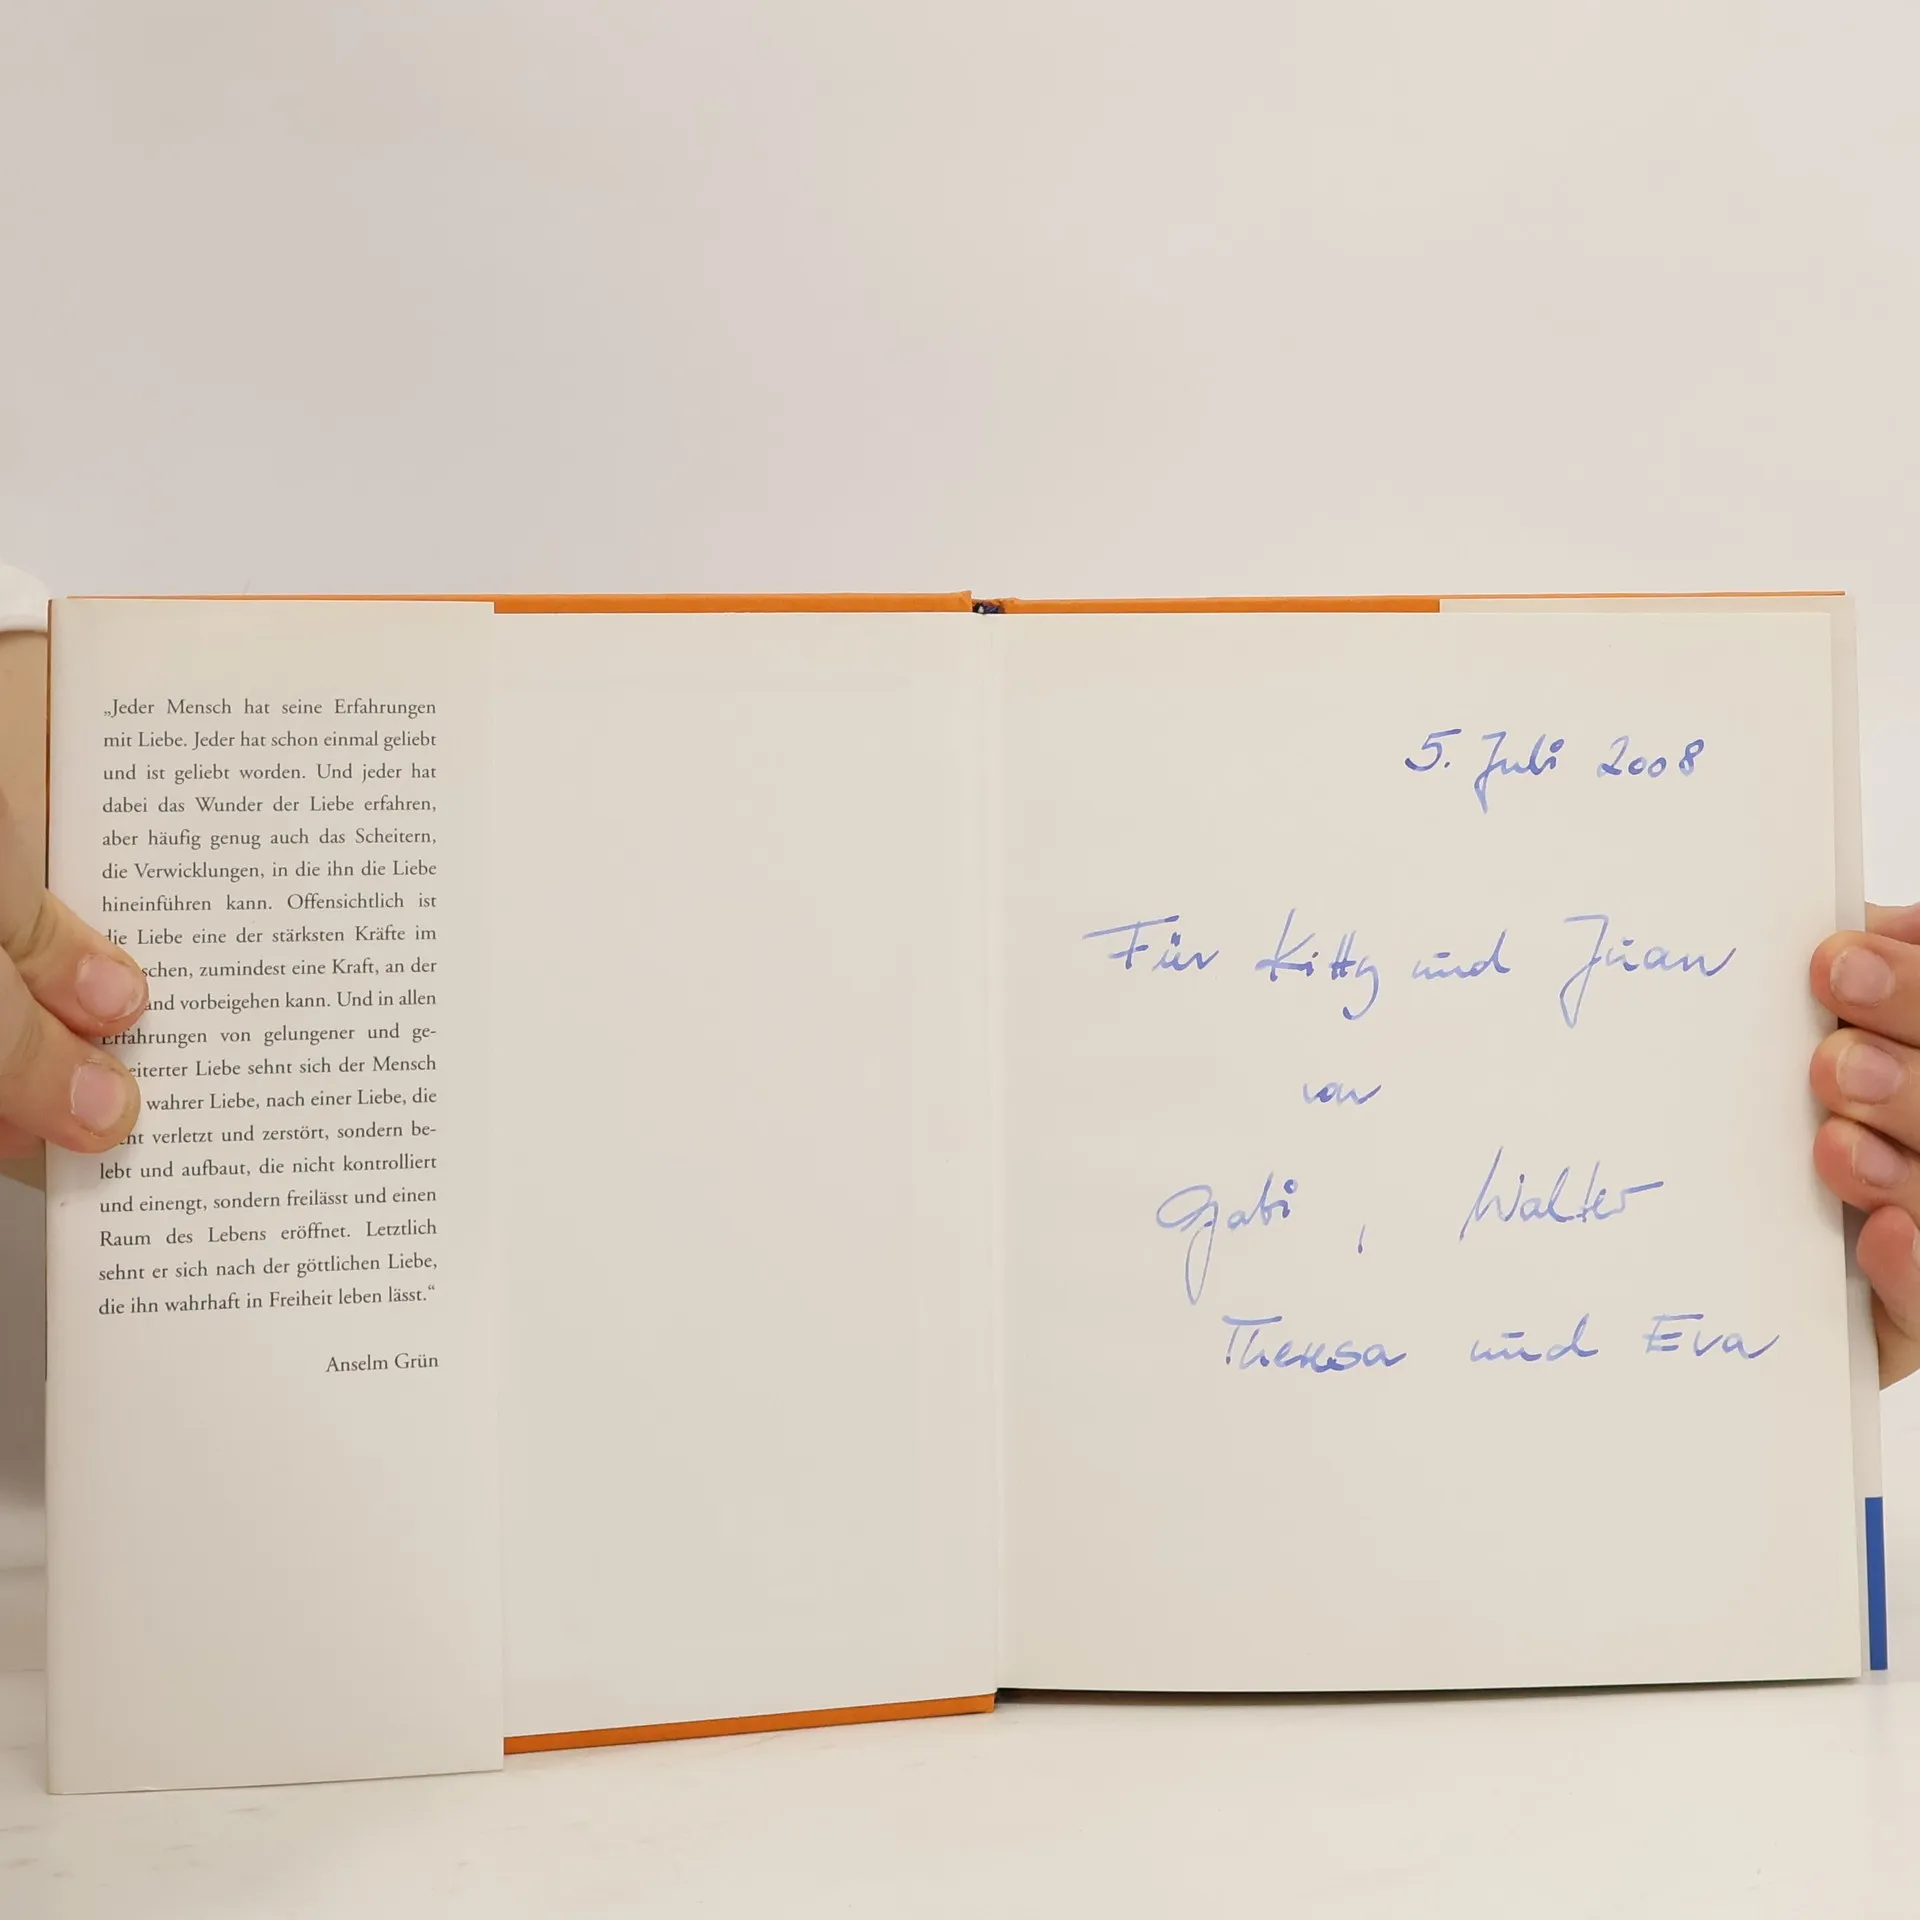 „Jeder Mensch hat seine Erfahrungen
mit Liebe. Jeder hat schon einmal geliebt
und ist geliebt worden. Und jeder hat
dabei das Wunder der Liebe erfahren,
aber häufig genug auch das Scheitern,
die Verwicklungen, in die ihn die Liebe
hineinführen kann. Offensichtlich ist
die Liebe eine der stärksten Kräfte im
schen, zumindest eine Kraft, an der
and vorbeigehen kann. Und in allen
Erfahrungen von gelungener und ge-
eiterter Liebe sehnt sich der Mensch
wahrer Liebe, nach einer Liebe, die
nt verletzt und zerstört, sondern be-
lebt und aufbaut, die nicht kontrolliert
und einengt, sondern freilässt und einen
Raum des Lebens eröffnet. Letztlich
sehnt er sich nach der göttlichen Liebe,
die ihn wahrhaft in Freiheit leben lässt.“
Anselm Grün
5. Juli 2008
Für Kitty und Juan
von
Gabi , Walter
Theresa und Eva